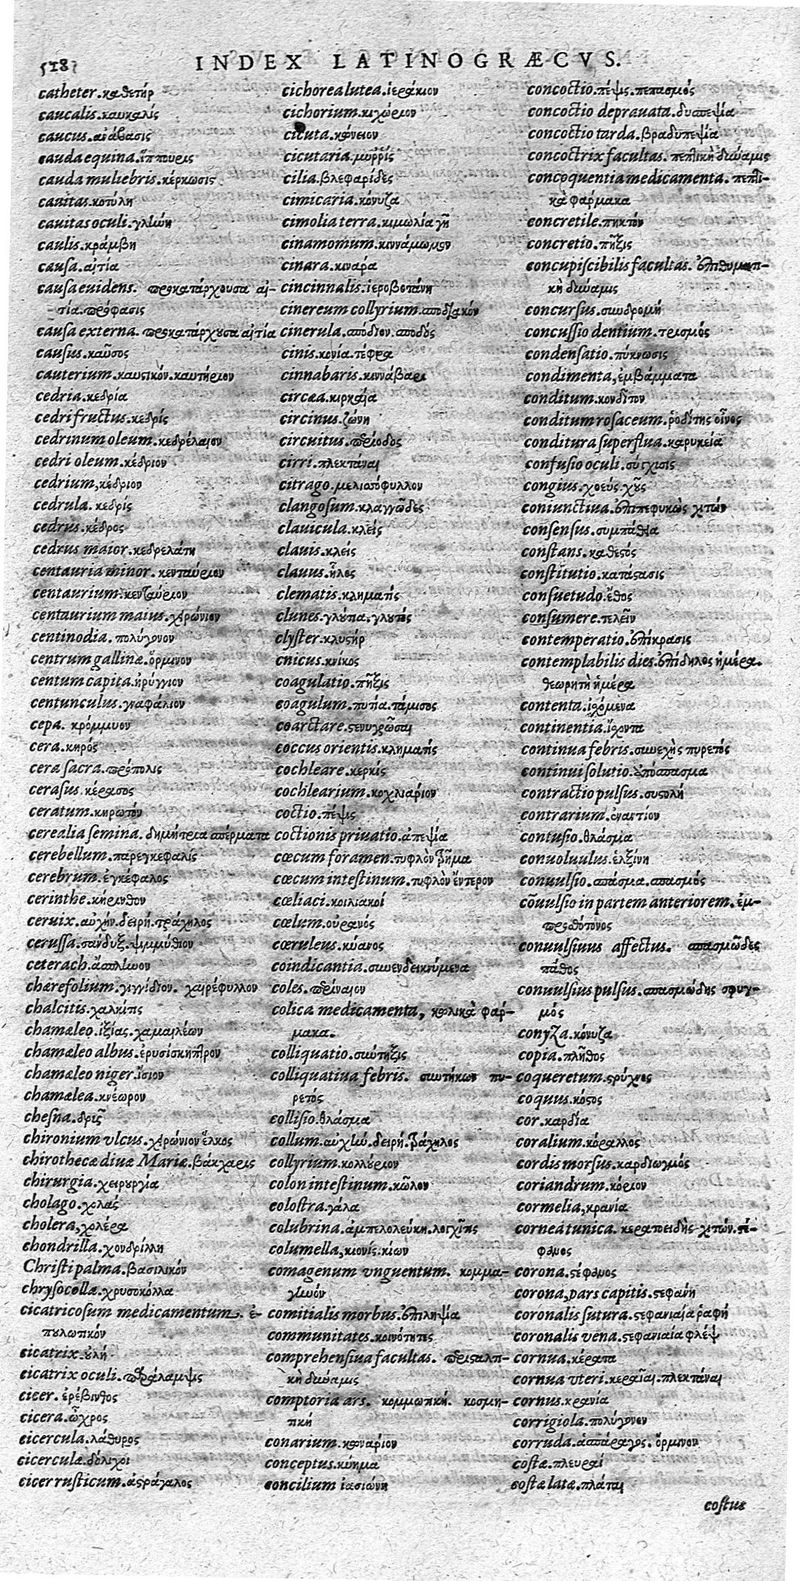 528
INDEX LATINOGRÆCVS.
catheter. καθετήρ
caucalis. καυκαλίς
caucus. ἀνάβασις
cauda equina. ἵππουρις
cauda muliebris. κέρκωσις
cauitas. κοτύλη
cauitas oculi. γλήνη
caulis. κράμβη
causa. αἰτία
causa euidens. προκατάρχουσα αἰ-
τία. πρόφασις
causa externa. προκατάρχουσα αἰτία
causus. καῦσος
cauterium. καυστικόν. καυτήριον
cedria. κεδρία
cedri fructus. κεδρίς
cedrinum oleum. κεδρέλαιον
cedri oleum. κέδριον
cedrium, κέδριον
cedrula. κεδρίς
cedrus. κέδρος
cedrus maior. κεδρελάτη
centauria minor. κενταύριον
centaurium. κενταύριον
centaurium maius. χρώνιον
centinodia. πολύγονον
centrum gallinæ. ὅρμινον
centum capita. ἠρύγγιον
centunculus. γναφάλιον
cepa. κρόμμυον
cera. κηρός
cera sacra. πρόπολις
cerasus. κέρασος
ceratum. κηρωτόν
cerealia semina. δημήτρια σπέρματα
cerebellum. παρεγκεφαλίς
cerebrum. ἐγκέφαλος
cerinthe. κήρινθον
ceruix. αὐχήν. δειρή. τράχηλος
cerussa. σανδυξ. ψιμμύθιον
ceterach. ἄσπλίωον
chærefolium. γιγγίδιον. χαιρέφυλλον
chalcitis. χαλκίτις
chamæleo. ἰξίας. χαμαιλέων
chamæleo albus. ἐρυσίσκηπτρον
chamæleo niger. ἴσιον
chamælea. κνέωρον
chesna. δρῦς
chironium vlcus. χρώνιον ἕλκος
chirothecæ diuæ Mariæ. βάκχαρις
chirurgia. χειρυργία
cholago. χολάς
cholera, χολέρα
chondrilla. χονδρίλλη
Christi palma. βασιλικόν
chrysocolla. χρυσοκόλλα
cicatricosum medicamentum. ἐ-
πυλωτικόν
cicatrix. οὐλή
cicatrix oculi. παράλαμψις
cicer. ἐρέβινθος
cicera. ὦχρος
cicercula. λάθυρος
cicerculæ. δόλιχοι
cicer rusticum. ἀστράγαλος
cichorea lutea. ἱεράκιον
cichorium. κιχώριον
cicuta. κώνειον
cicutaria. μυρρίς
cilia. βλεφαρίδες
cimicaria. κόνυζα
cimolia terra. κιμωλία γῆ
cinamomum. κιννάμωμον
cinara. κινάρα
cincinnalis. ἱεροβοτάνη
cinereum collyrium. σποδιακόν
cinerula. σποδιον. σποδός
cinis. κονία. τέφρα
cinnabaris. κιννάβαρι
circæa. κιρκαία
circinus. ζώνη
circuitus. περίοδος
cirri. πλεκτάναι
citrago. μελισσόφυλλον
clangosum. κλαγγῶδες
clauicula. κλείς
clauis. κλείς
clauus. ἧλος
clematis. κληματίς
clunes. γλύπα. γλυτός
clyster. κλυστήρ
cnicus. κνίκος
coagulatio. πῆξις
coagulum. πυτία. τάμισος
coarctare. στενυχωῶσαι
coccus orientis. κληματίς
cochleare. κερκίς
cochlearium. κοχλιάριον
coctio. πέψις
coctionis priuatio. ἀπεψία
cœcum foramen. τυφλὸν τρῆμα
cœcum intestinum. τυφλὸν ἔντερον
cœliaci. κοιλιακοί
cœlum. οὐρανός
cœruleus. κύανος
coindicantia. συνενδεικνύμενα
coles. περίναιον
colica medicamenta, κωλικὰ φάρ-
μακα.
colliquatio. σύντηξις
colliquatiua febris. συντήκων πυ-
ρετός
collisio. θλάσμα
collum. αὐχήν. δειρή. τράχηλος
collyrium. κολλύριον
colon intestinum. κῶλον
colostra. γάλα
colubrina. ἀμπελολεύκη. λογχῖτις
columella, κιονίς. κίων
comagenum vnguentum. κομμα-
γηνόν
comitialis morbus. ἐπιληψία
communitates. κοινότητες
comprehensiua facultas. περισταλτι-
κὴ δύναμις
comptoria ars. κομμωτική. κοσμη-
τική
conarium. κωνάριον
conceptus. κύημα
concilium ἰασιώνη
concoctio. πέψις. πεπασμός
concoctio deprauata. δυσπεψία
concoctio tarda. βραδυπεψία
concoctrix facultas. πεπτικὴ δύναμις
concoquentia medicamenta. πεπτι-
κὰ φάρμακα
concretile. πηκτόν
concretio. πῆξις
concupiscibilis facultas. ἐπιθυμητι-
κὴ δύναμις
concursus. συνδρομή
concussio dentium. τρισμός
condensatio. πύκνωσις
condimenta, ἐμβάμματα
conditum. κονδῖτον
conditum rosaceum. ῥοδίτης οἶνος
conditura superflua. καρυκεία
confusio oculi. σύγχισις
congius. χοεύς. χῦς
coniunctiua. ἐπιπεφυκὼς χιτών
consensus. συμπάθεια
constans. καθετός
constitutio. κατάστασις
consuetudo. ἔθος
consumere. τελεῖν
contemperatio. ἐπίκρασις
contemplabilis dies. ἐπίδηλος ἡμέρα.
θεωρητὴ ἡμέρα
contenta. ἰχόμενα
continentia. ἴχοντα
continua febris. συνεχὴς πυρετός
continui solutio. ἀπόσπασμα
contractio pulsus. συστολή
contrarium. ἐναντίον
contusio. θλάσμα
conuoluulus. ἑλξίνη
conuulsio. σπάσμα. σπασμός
conuulsio in partem anteriorem. ἐμ-
προσθότονος
conuulsiuus affectus. σπασμῶδες
πάθος
conuulsius pulsus. σπασμώδης σφυγ-
μός
conyza. κόνυζα
copia. πλῆθος
coqueretum. στρύχνος
coquus. κόσος
cor. καρδία
coralium. κόραλλος
cordis morsus. καρδιωγμός
coriandrum. κόριον
cormelia, κρανία
cornea tunica. κερατοειδὴς χιτών. στέ-
φανος
corona. στέφανος
corona, pars capitis. στεφάνη
coronalis sutura. στεφανιαία ραφή
coronalis vena. στεφανιαία φλέψ
cornua. κέρατα
cornua vteri. κεραῖαι. πλεκτάναι
cornus. κρανία
corrigiola. πολύγονον
corruda. ἀσπάραγος. ὅρμινον
costæ. πλευραί
costæ latæ. πλάται
costus